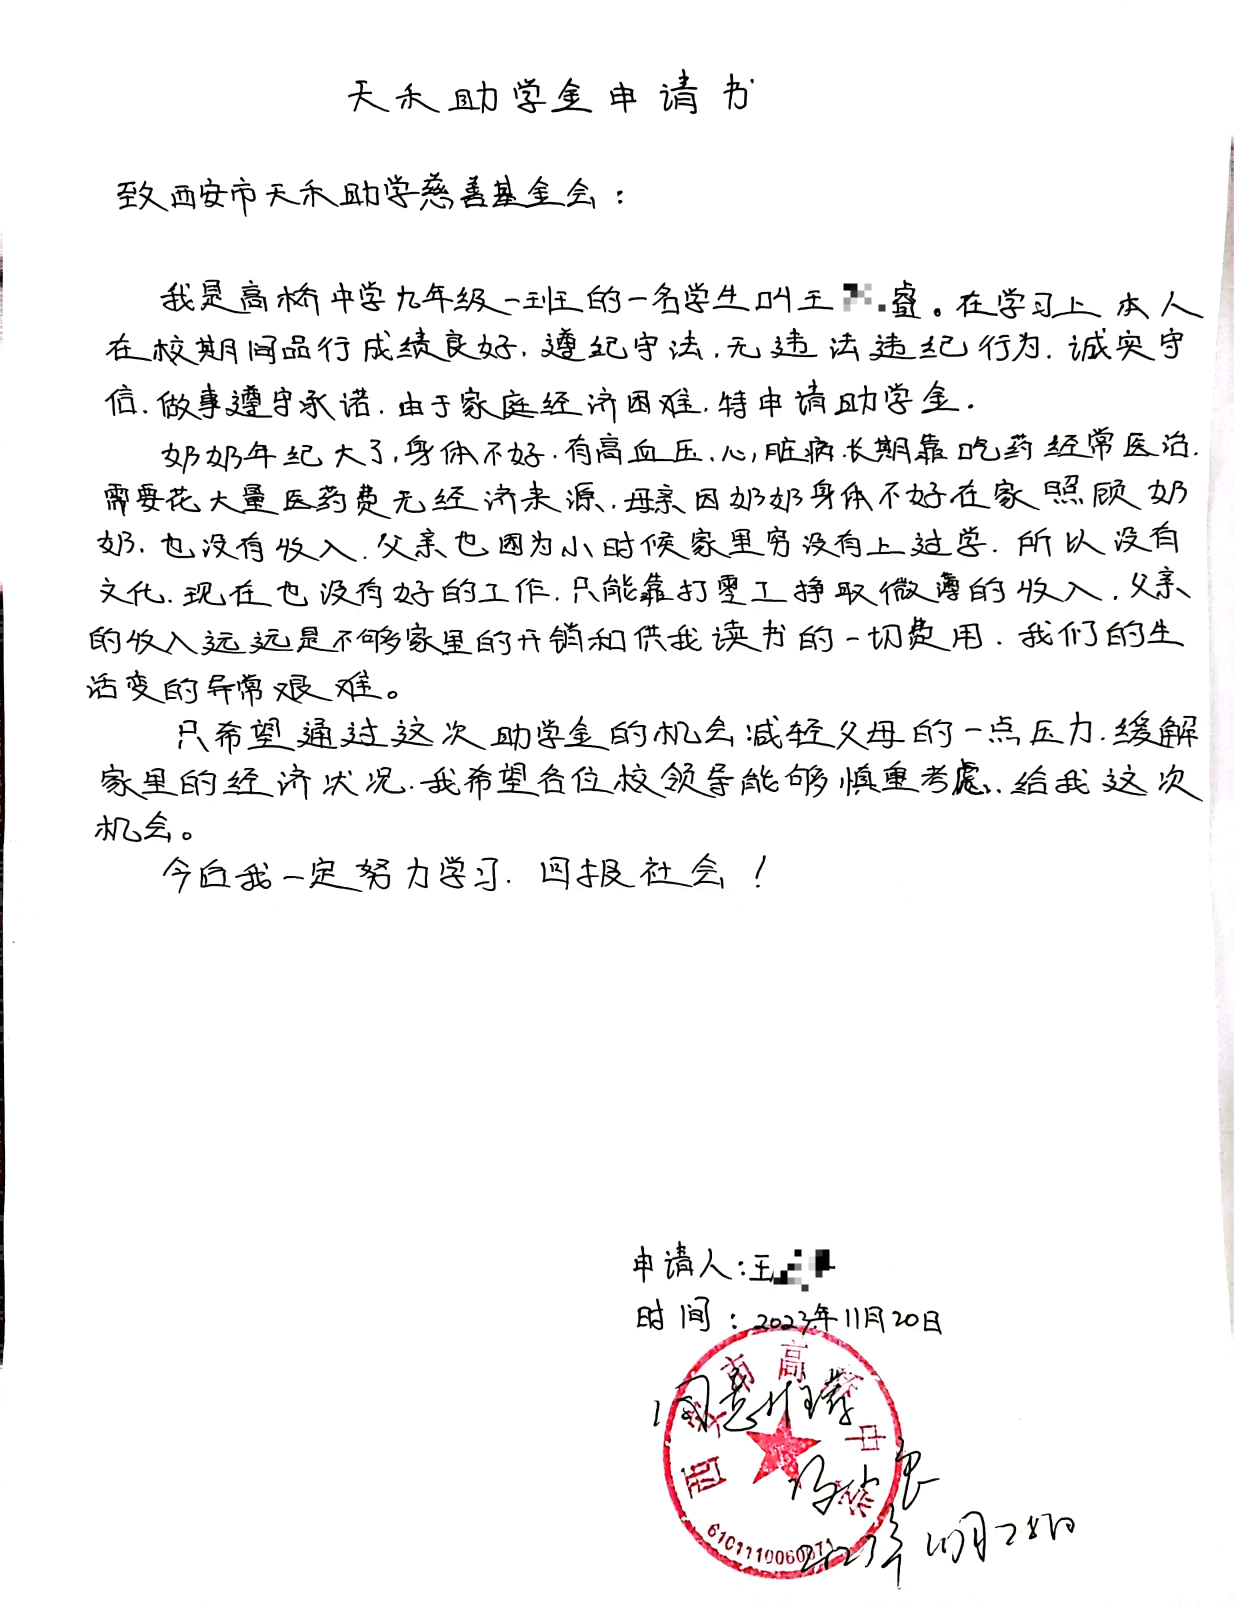 天禾助学金申请书
致西安市天禾助学慈善基金会：
我是高桥中学九年级一班的一名学生叫王睿。在学习上本人
在校期间品行成绩良好.遵纪守法.无违法违纪行为.诚实守
信.做事遵守承诺.由于家庭经济困难.特申请助学金.
奶奶年纪大了,身体不好.有高血压、心脏病.长期靠吃药经常医治.
需要花大量医药费无经济来源.母亲因奶奶身体不好在家照顾奶
奶.也没有收入.父亲也因为小时候家里穷没有上过学.所以没有
文化.现在也没有好的工作.只能靠打零工挣取微薄的收入.父亲
的收入远远是不够家里的开销和供我读书的一切费用.我们的生
活变的异常艰难。
只希望通过这次助学金的机会减轻父母的一点压力.缓解
家里的经济状况.我希望各位校领导能够慎重考虑.给我这次
机会。
今后我一定努力学习.回报社会！
申请人:王
时间：2023年11月20日
西安市高桥中学
同意推荐
6101110060871
2023年11月28日